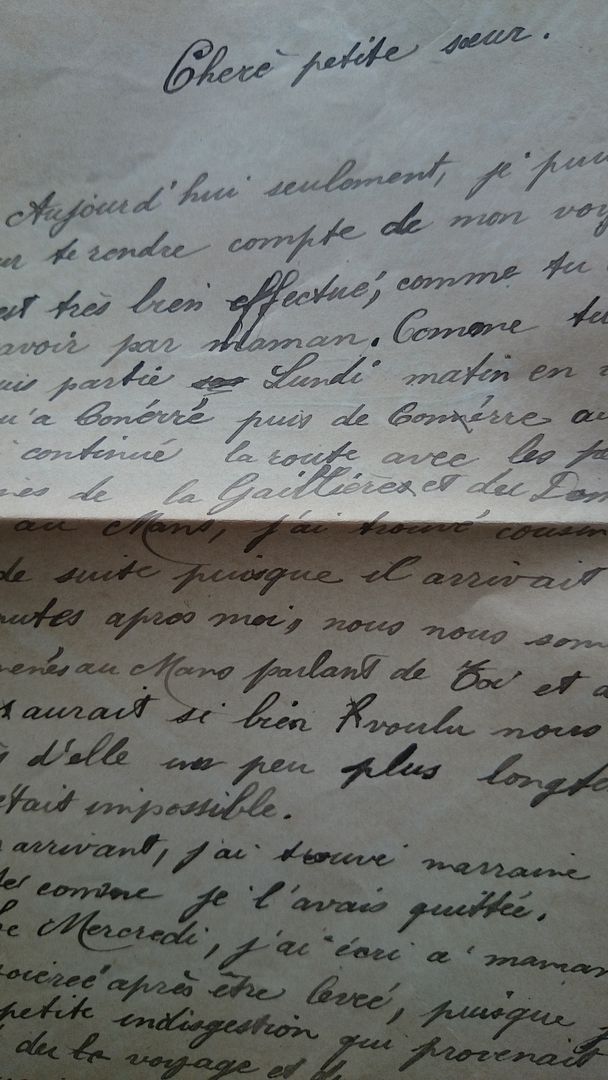 Cherè petite sœur.
Aujourd'hui seulement, je puis
te rendre compte de mon voy
est très bien effectué, comme tu
avoir par maman. Comme tu
uis partie Lundi matin en
u'a Conérré puis de Connérre au
continué la route avec les pa
nes de la Gaillières et du Dom
au Mans, j'ai trouvé cousin
de suite puisque il arrivait
nutes apres moi, nous nous som
menés au Mans parlant de Toi et d
aurait si bien voulu nous
s d'elle un peu plus longte
était impossible.
arrivant, j'ai trouvé marraine
comme je l'avais quittée.
Le Mercredi, j'ai écri a maman
après être levée, puisque j
petite indisgestion qui provenait
du voyage et d